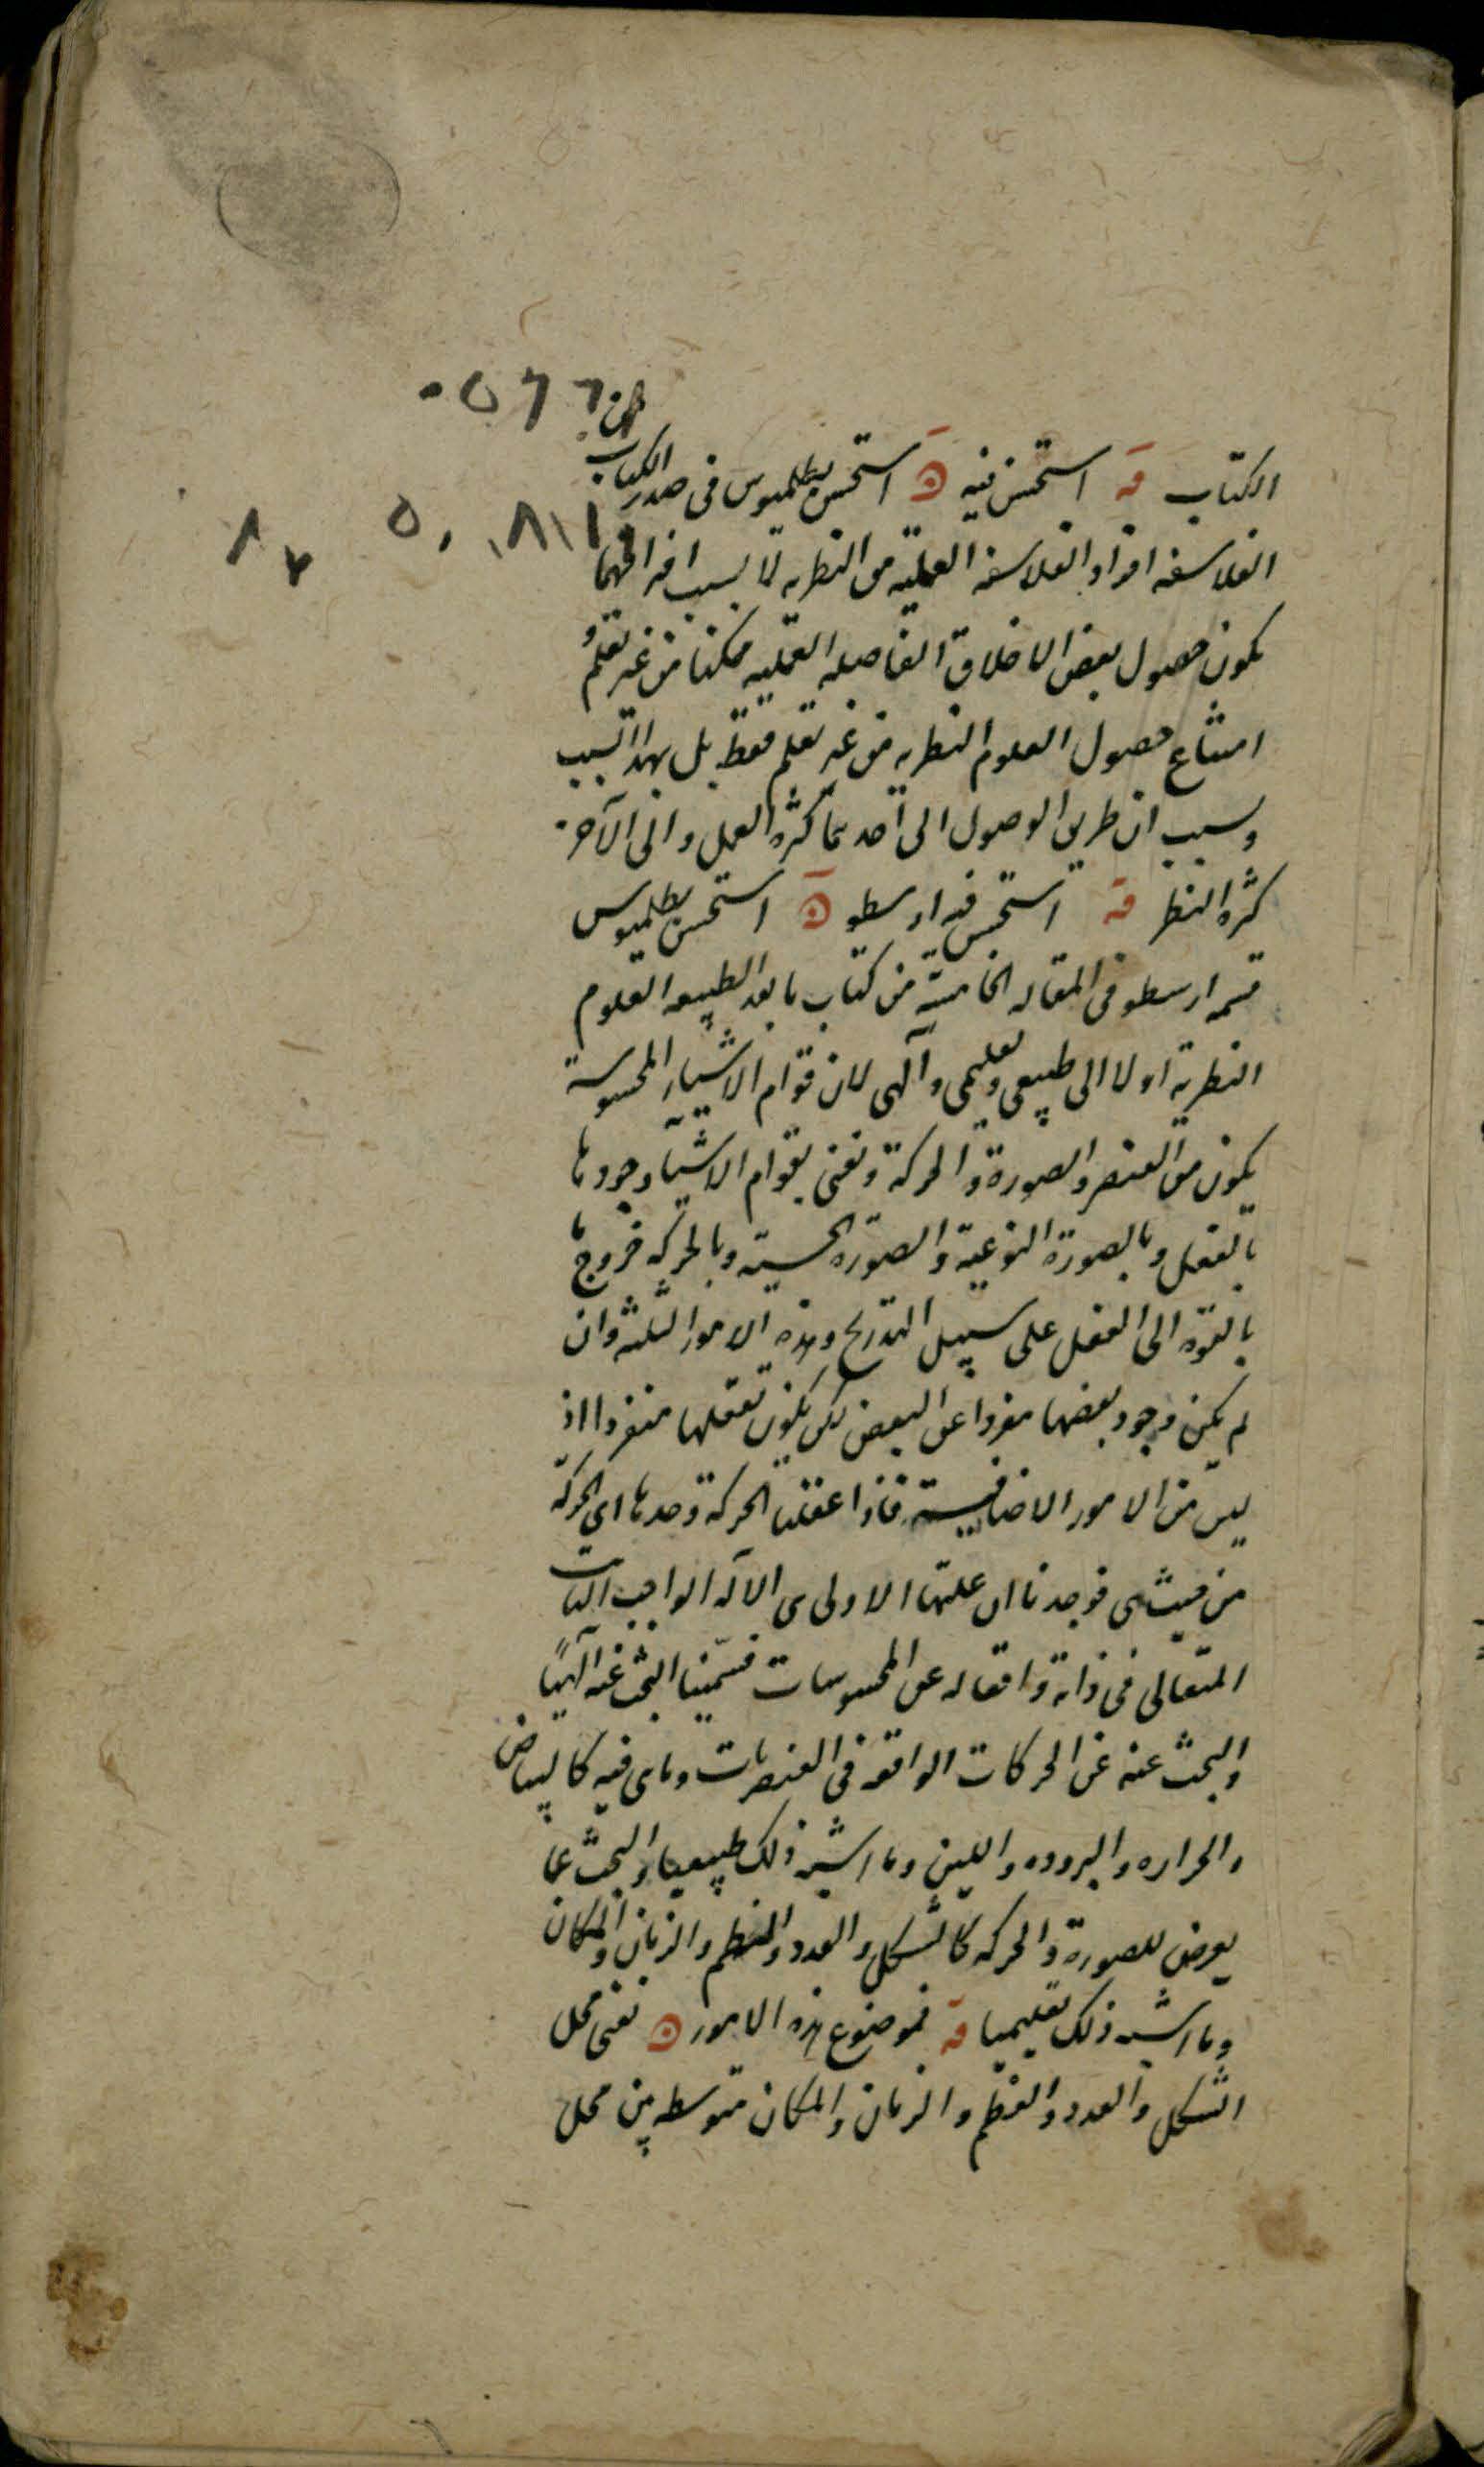 من
٠٥٦٦
الكتاب قه استحسن فيه ۞ استحسن بطلميوس فى صدر الكتاب
٨٧ ٥٠١٨١١
الفلاسفه افراد الفلاسفه العمليه من النظريه لا بسبب افتراقهما
بكون حصول بعض الاخلاق الفاضله العمليه ممكنا من غير تعلم و
امتناع حصول العلوم النظريه من غير تعلم فقط بل بهذا السبب
وبسبب ان طريق الوصول الى احدهما كثرة العمل والى الآخر
كثرة النظر قه استحسن فيه ارسطو ۞ استحسن بطلميوس
قسمه ارسطو فى المقاله الخامسة من كتاب ما بعد الطبيعه العلوم
النظرية اولا الى طبيعى وتعليمى وآلهى لان قوام الاشياء المحسوسة
يكون من العنصر والصورة والحركة ونعنى بقوام الاشياء وجودها
بالفعل وبالصورة النوعية والصورة الجسمية وبالحركه خروج ما
بالقوة الى الفعل على سبيل التدريج وهذه الامور الثلثة وان
لم يكن وجود بعضها مفردا عن البعض لكن يكون تعقلها منفردا اذ
ليس من الامور الاضافية فاذا عقلنا الحركة وحدها اى الحركة
من حيث هى فوجدنا ان علتها الاولى هى الآله الواجب الثابت
المتعالى فى ذاته وافعاله عن المحسوسات فسمينا البحث عنه آلهيًا
والبحث عنه عن الحركات الواقعه فى العنصريات وما هى فيه كالبياض
والحراره والبروده واللين وما اشبه ذلك طبيعيا والبحث عما
يعرض للصورة والحركه كالشكل والعدد والعظم والزمان والمكان
وما اشبه ذلك تعليميا قه فموضوع هذه الامور ۞ نعنى محل
الشكل والعدد والعظم والزمان والمكان متوسطه بين محل